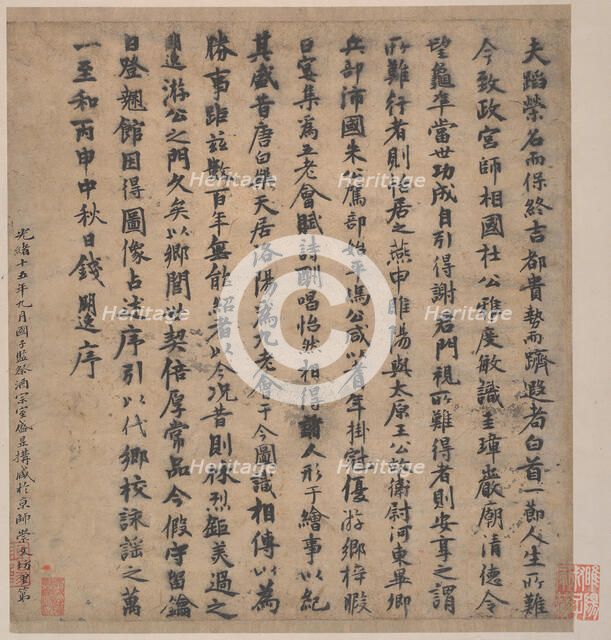 夫蹈榮名而保終吉都貴勢而躋遐耇白首一節人生所難
今致政宮師相國杜公雅度敏識圭璋巖廟清德令
望龜準當世功成自引得謝君門視所難得者則安享之謂
所難行者則恬居之燕申睢陽與太原王公故衛尉河東畢卿
兵部沛國朱公駕部始平馮公咸以耆年掛冠優游鄉梓暇
日宴集為五老會賦詩酬唱怡然相得諸人形于繪事以紀
其盛昔唐白樂天居洛陽為九老會于今圖識相傳以為
勝事距茲數百年無能紹者以今況昔則休烈鉅美過之
明逸游公之門久矣以鄉閭世契倍厚常品今假守留鑰
日登翹館因得圖像占述序引以代鄉校詠謠之萬
一至和丙申中秋日錢明逸序
光緒十五年九月國子監祭酒宗室盛昱搆藏於京師崇文坊里第
睢陽
Heritage
Heritage
Heritage
Heritage
Heritage
Heritage
Heritage
Heritage
Heritage
©